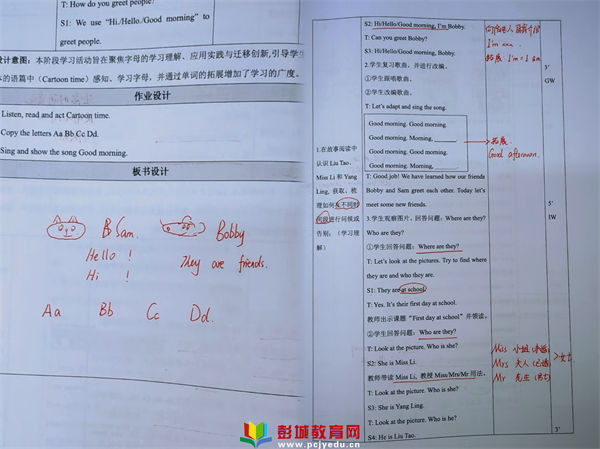 T: How do you greet people?
S1: We use "Hi/Hello/Good morning" to
greet people.
设计意图：本阶段学习活动旨在聚焦字母的学习理解、应用实践与迁移创新,引导学生
本的语篇中（Cartoon time）感知、学习字母，并通过单词的拓展增加了学习的广度。
作业设计
Listen, read and act Cartoon time.
Copy the letters Aa Bb Cc Dd.
Sing and show the song Good morning.
板书设计
Sam. Bobby
Hello !
Hi !
They are friends.
Aa Bb Cc Dd.
1.在故事阅读中
认识 Liu Tao、
Miss Li 和 Yang
Ling, 获取、梳
理如何在不同时
间段进行问候或
告别；（学习理
解）
S2: Hi/Hello/Good morning, I'm Bobby.
T: Can you greet Bobby?
S3: Hi/Hello/Good morning, Bobby.
2.学生复习歌曲，并进行改编。
①学生跟唱歌曲。
②学生改编歌曲。
T: Let's adapt and sing the song.
Good morning. Good morning.
Good morning. Morning, ______
Good morning. Good morning.
Good morning. Morning, ______
T: Good job! We have learned how our friends
Bobby and Sam greet each other. Today let's
meet some new friends.
3.学生观察图片，回答问题: Where are they?
Who are they?
①学生回答问题: Where are they?
T: Let's look at the pictures. Try to find where
they are and who they are.
S1: They are at school.
T: Yes. It's their first day at school.
教师出示课题 "First day at school" 并领读。
②学生回答问题: Who are they?
T: Look at the picture. Who is she?
S2: She is Miss Li.
教师带读 Miss Li, 教授 Miss/Mrs/Mr 用法。
T: Look at the picture. Who is she?
S3: She is Yang Ling.
T: Look at the picture. Who is he?
S4: He is Liu Tao.
I'm xxx.
拓展 I'm = I am
拓展
Good afternoon.
Miss 小姐
Mrs 夫人
Mr 先生
女士
5'
GW
5'
IW
3'
彭城教育网
www.pcjyedu.cn